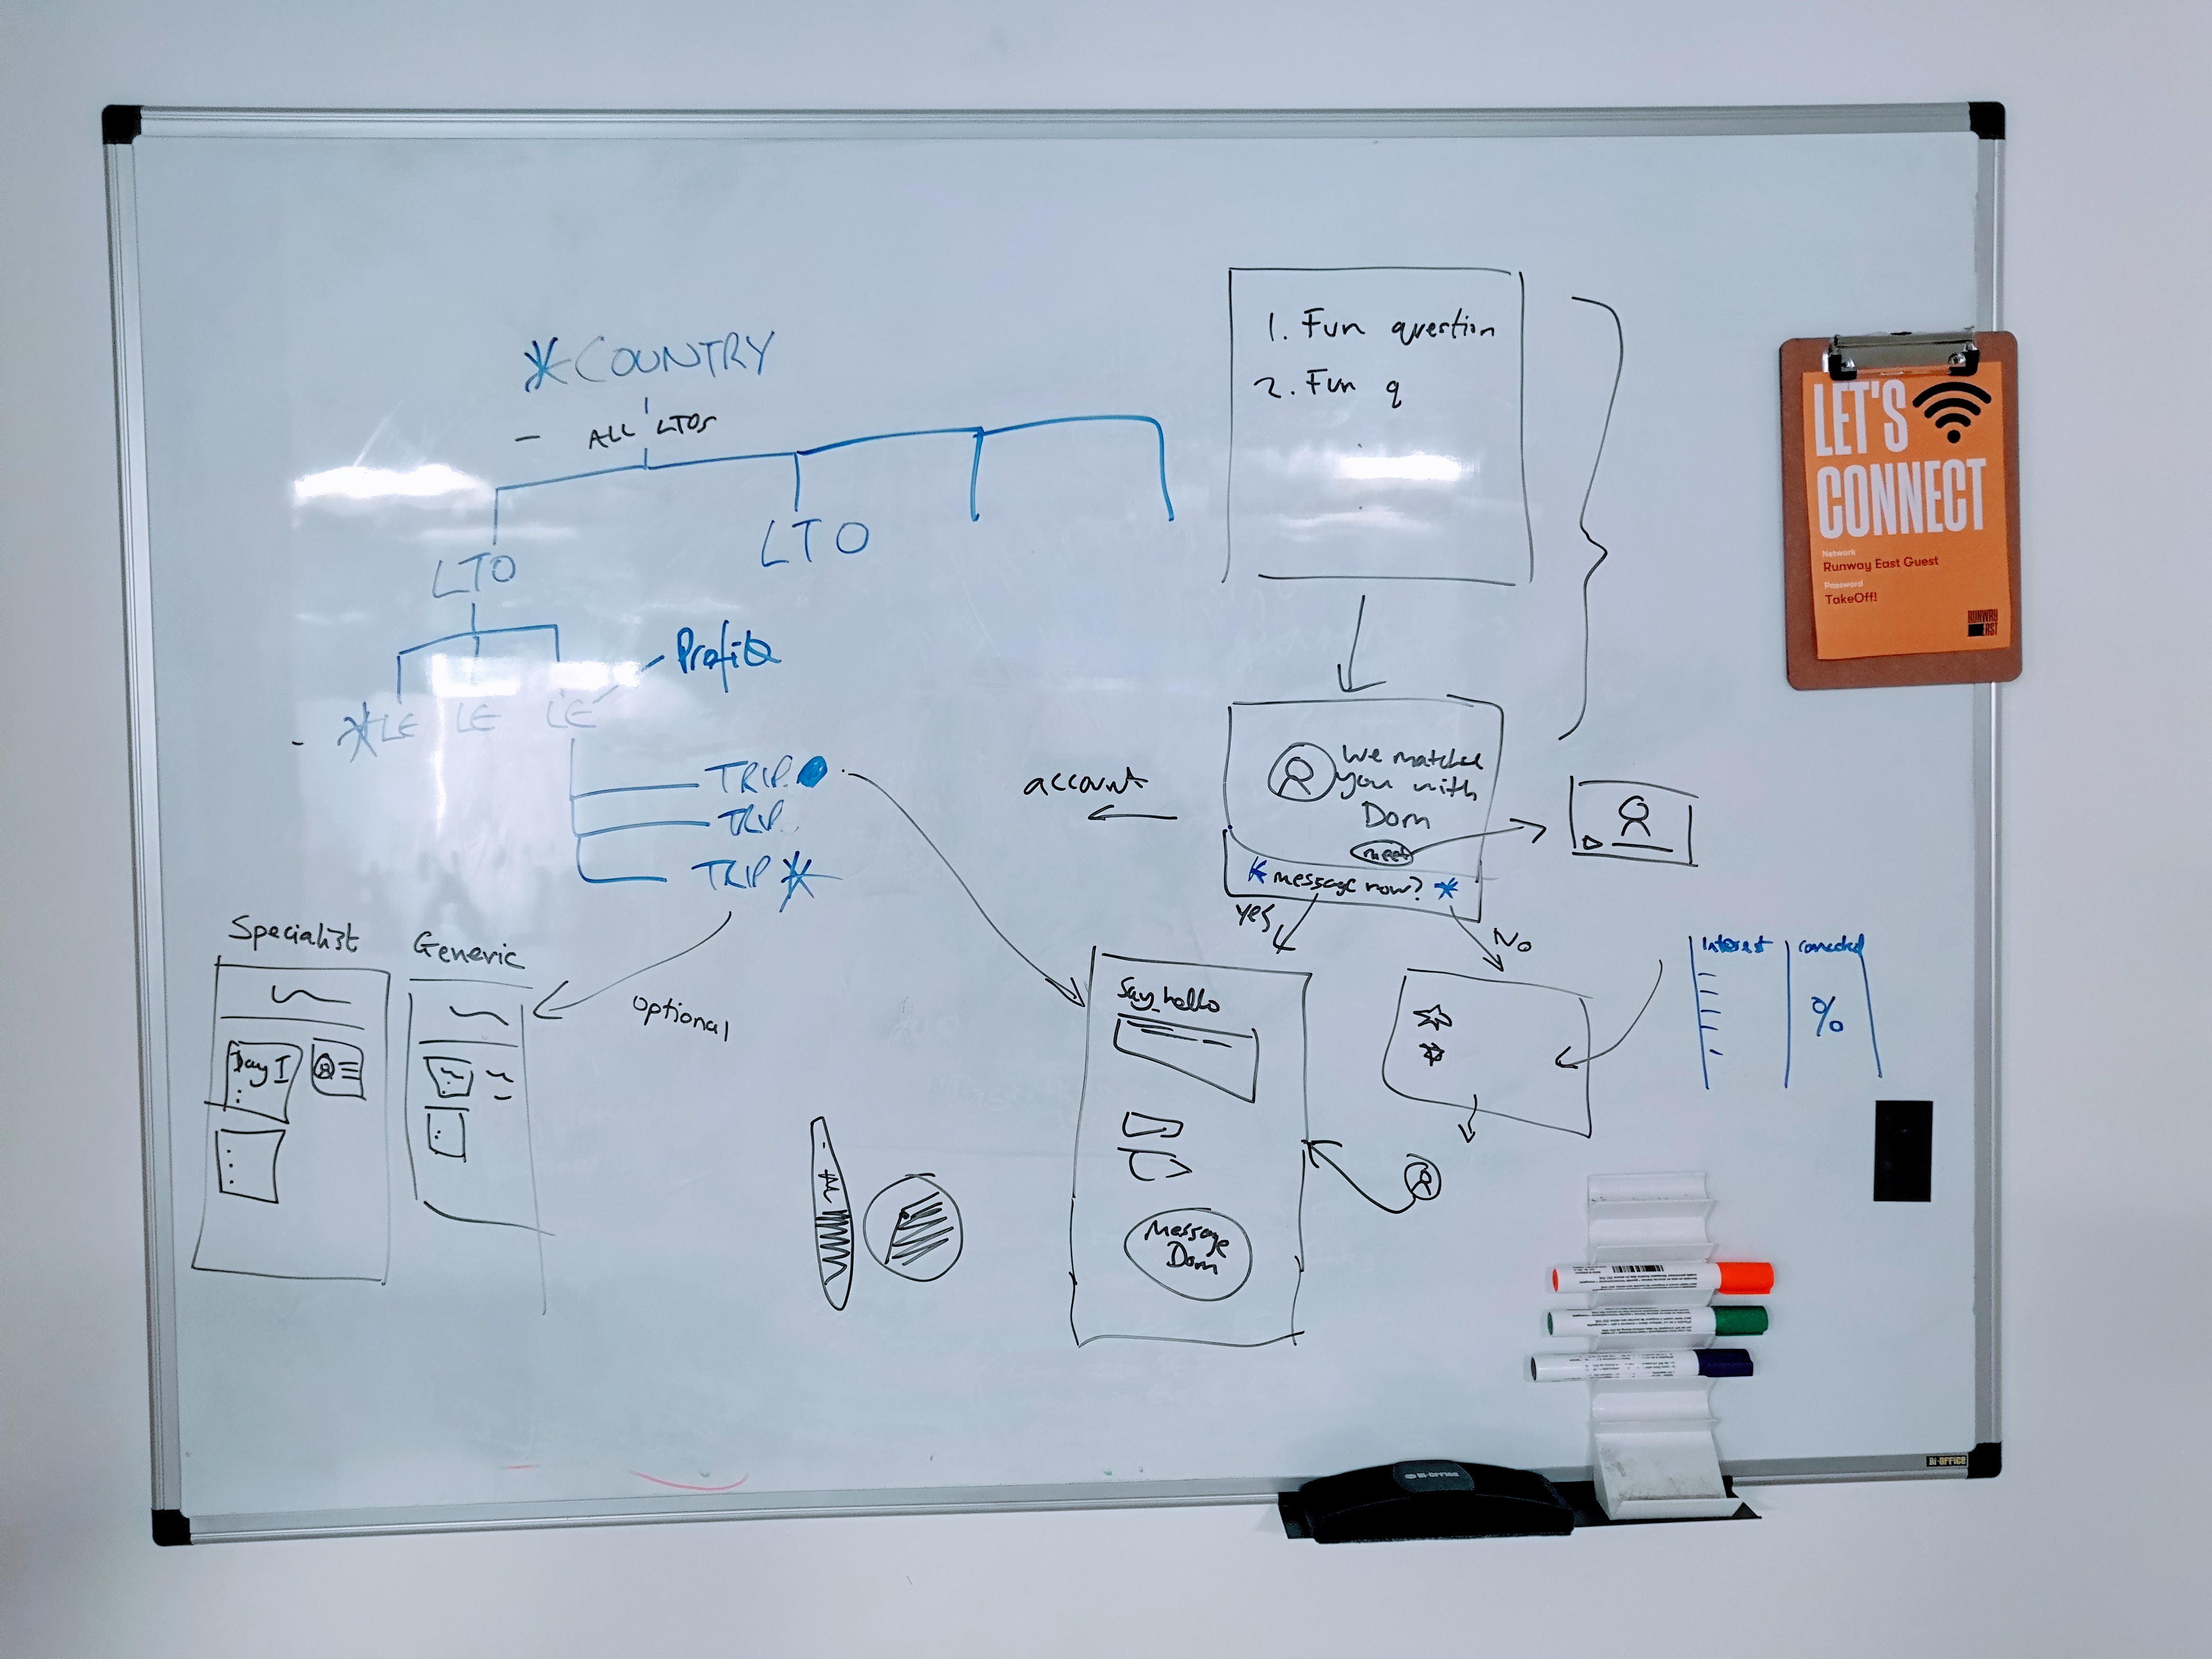 *COUNTRY
- ALL LTOs
LTO
LTO
Profile
- *LE LE LE
TRIP
TRIP
TRIP *
Specialist
Generic
optional
Day 1
1. Fun question
2. Fun q
We matched
you with
Dom
meet
* message now? *
account
Yes
No
Say hello
Message
Dom
Interest
%
LET'S
CONNECT
Network
Runway East Guest
Password
TakeOff!
RUNWAY
EAST
BI-OFFICE
BI-OFFICE